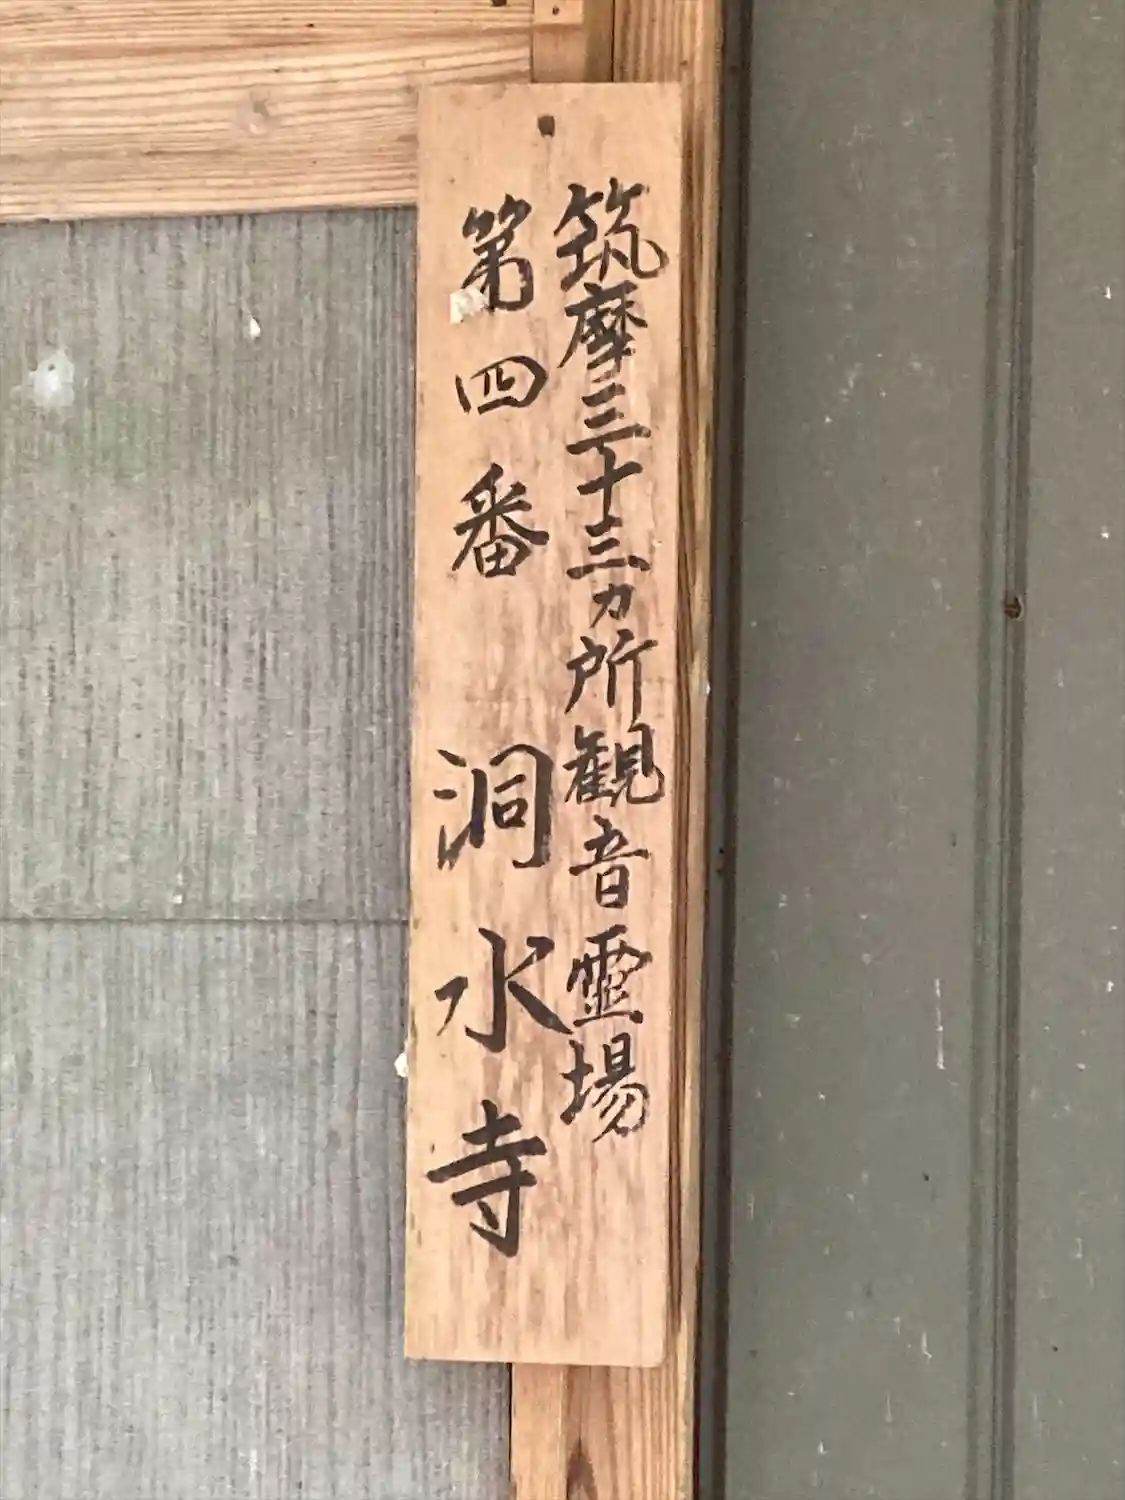 筑摩三十三カ所観音霊場
第四番 洞水寺